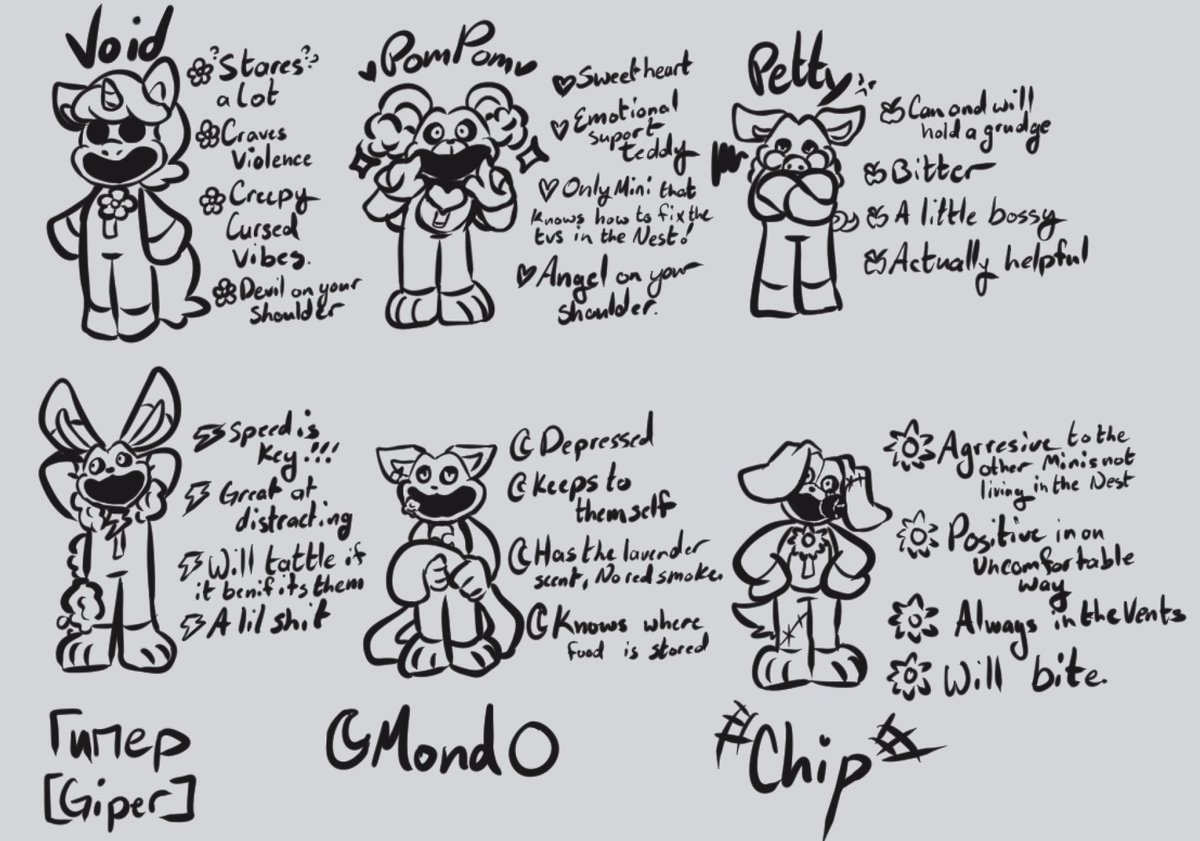 Void
?Stares?
a lot
Craves
Violence
Creepy
Cursed
Vibes.
Devil on your
Shoulder
PomPom
Sweetheart
Emotional
support
teddy
Only Mini that
knows how to fix the
tvs in the Nest!
Angel on your
shoulder.
Petty
Can and will
hold a grudge
Bitter
A little bossy
Actually helpful
Speed is
Key!!!
Great at
distracting
Will tattle if
it benifits them
A lil shit
Гипер
[Giper]
Depressed
Keeps to
themself
Has the lavender
scent, No red smoke.
Knows where
food is stored
Mondo
Agrresive to the
other Minis not
living in the Nest
Positive in an
Uncomfortable
way
Always in the Vents
Will bite.
#Chip#